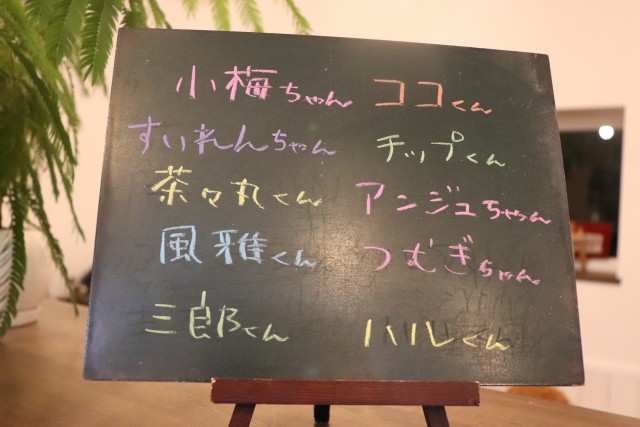 小梅ちゃん ココくん
すいれんちゃん チップくん
茶々丸くん アンジュちゃん
風雅くん つむぎちゃん
三郎くん ハルくん